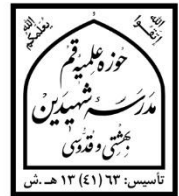 اتقوا الله
یعلمکم الله
حوزه علمیه قم
مدرسه شهیدین
بهشتی و قدوسی
تأسیس: ۶۳ (۴۱) ۱۳ هـ.ش